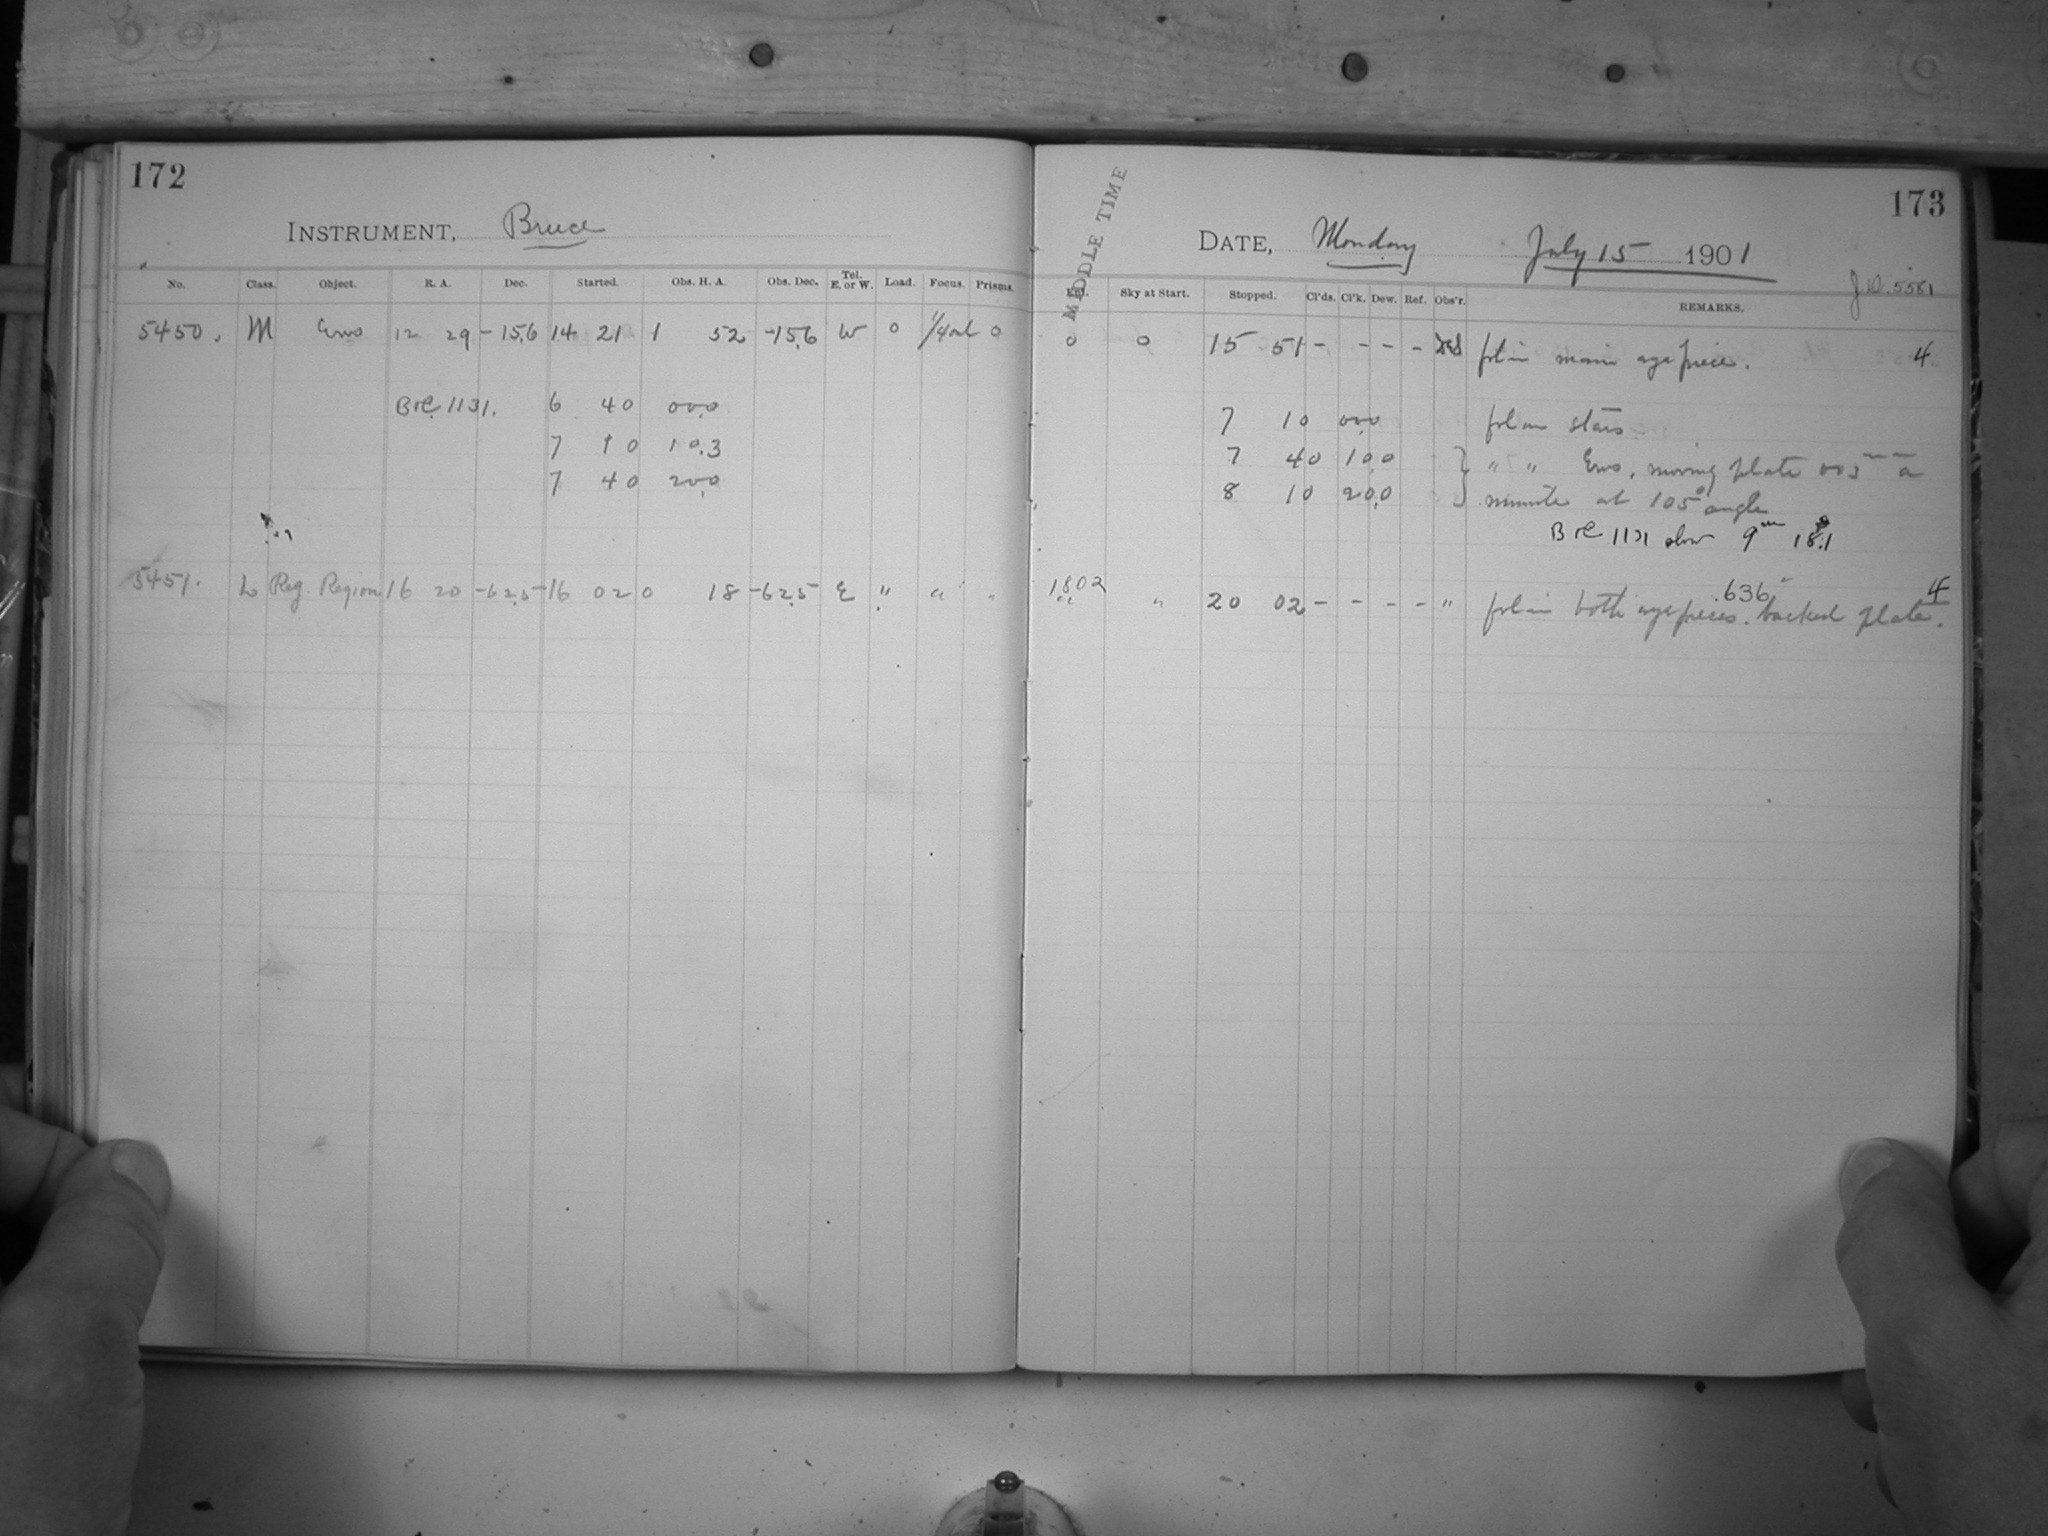 172
INSTRUMENT, Bruce
No. Class. Object. R. A. Dec. Started. Obs. H. A. Obs. Dec. Tel. E. or W. Load. Focus. Prisms.
5450. M Eros 12 29 -15.6 14 21 1 52 -15.6 W 0 0
1131. 6 40 00.0
7 10 10.3
7 40 20.0
5451. L Reg. Region 16 20 -62.5 -16 02 0 18 -62.5 E " " "
173
MIDDLE TIME
DATE, Monday July 15 1901
J.D. 5581
Sky at Start. Stopped. Cl'ds. Cl'k. Dew. Ref. Obs'r. REMARKS.
0 0 15 51 - - - - main eyepiece. 4
7 10 00.0 stars
7 40 10.0 } " " Eros, moving plate a
8 10 20.0 minute at 105° angle
1131 slow 9m 18.1
1802 .636 4
" " 20 02 - - - - " both eyepieces. backed plate.